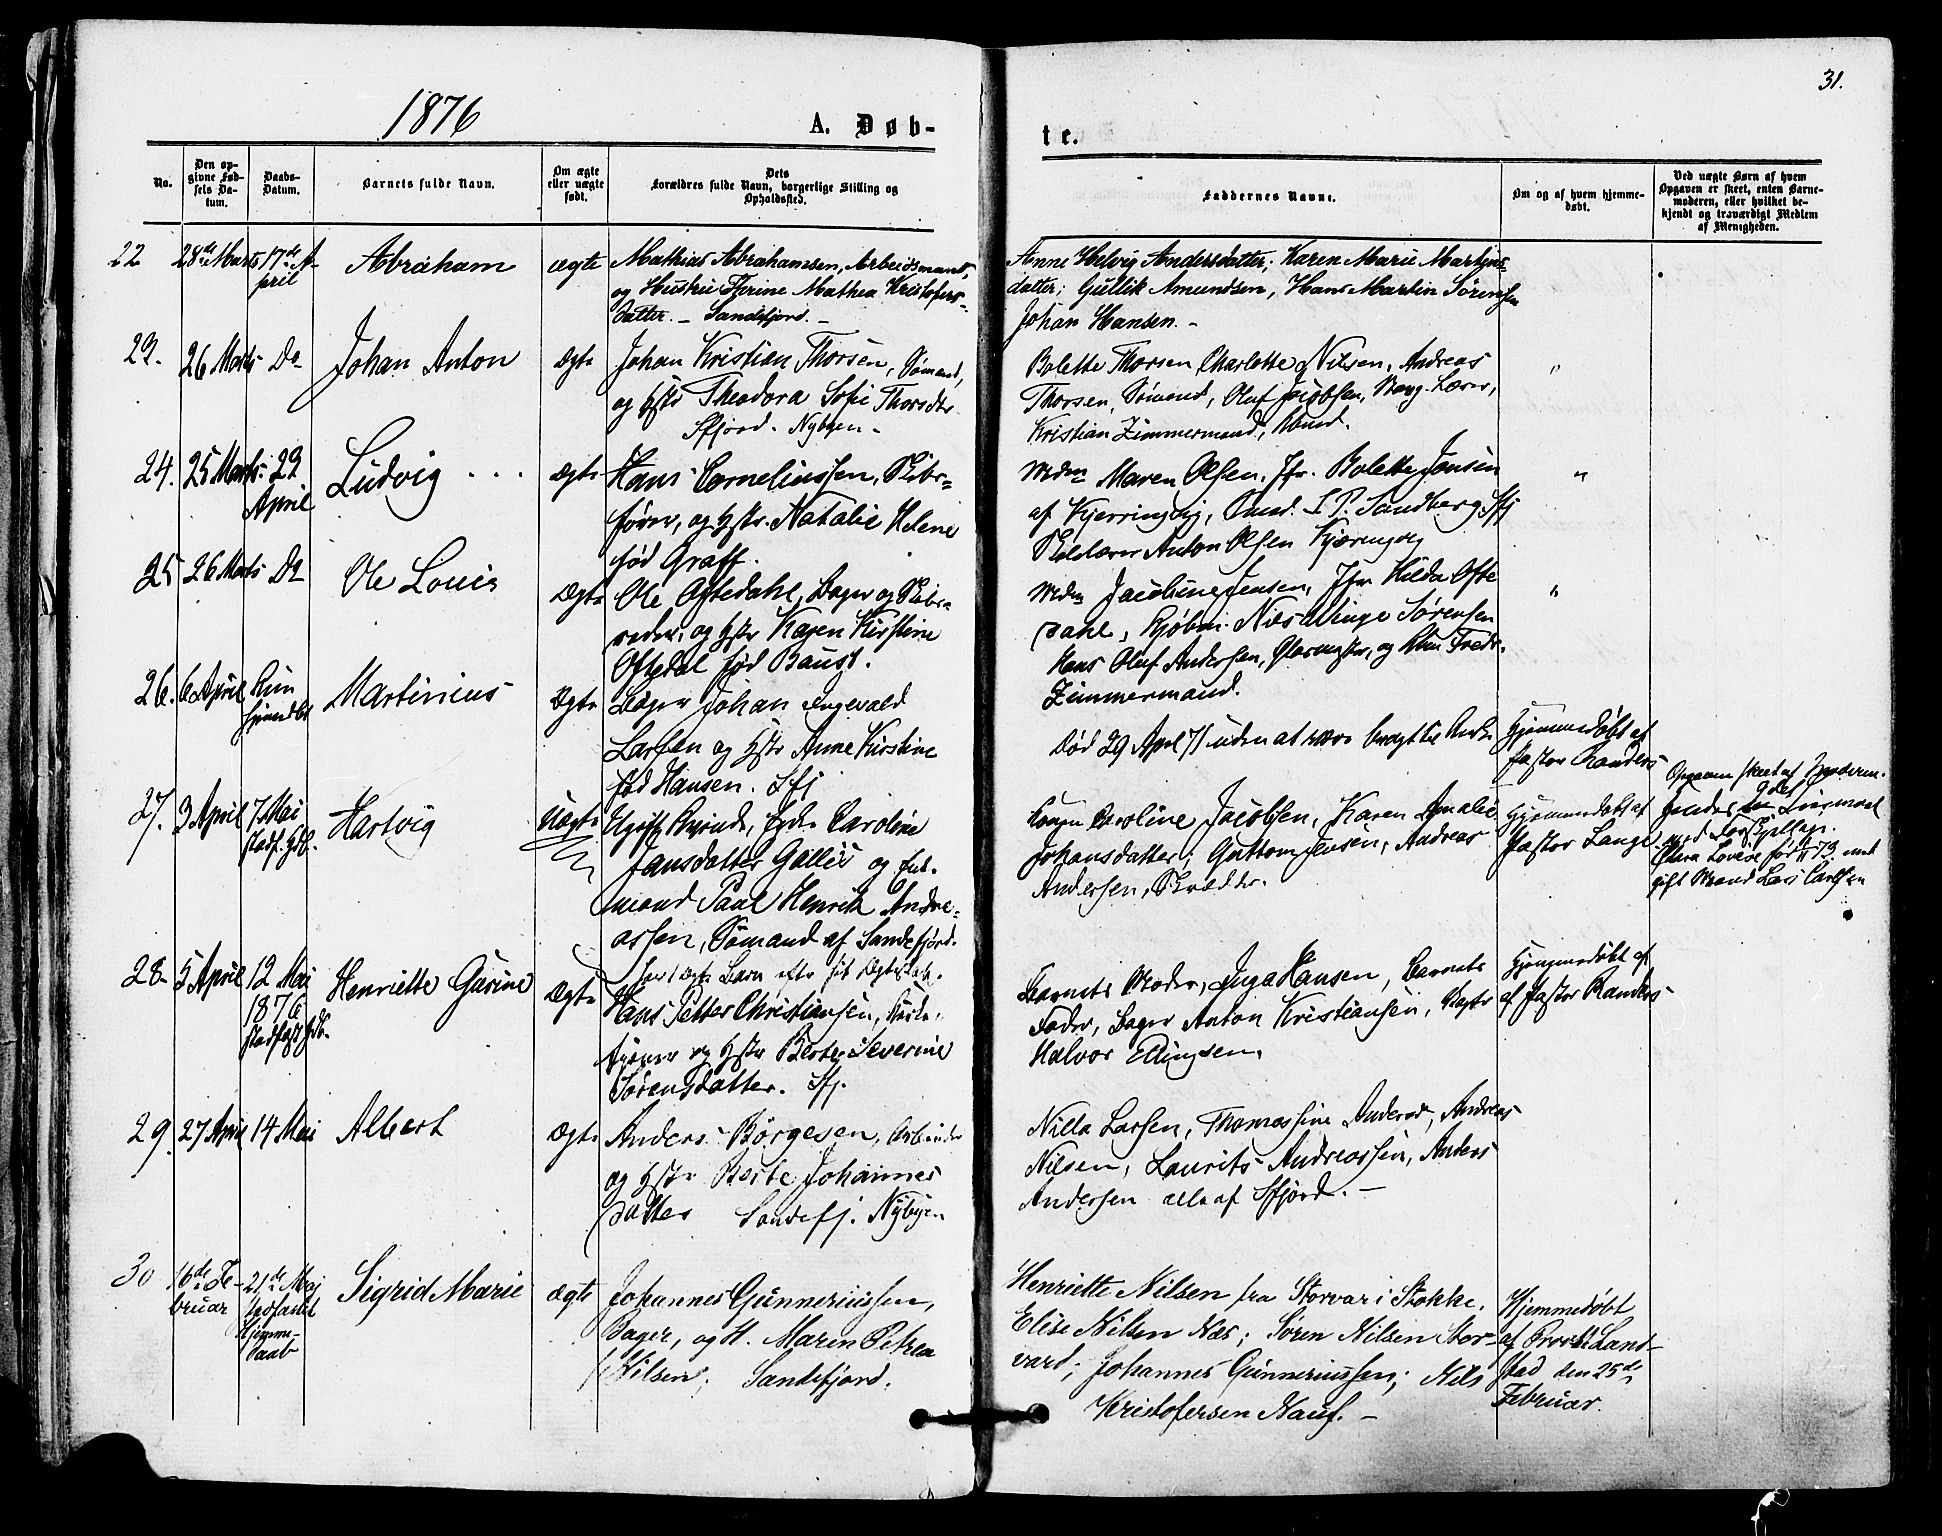 31.
1876
A. Døb-
te.
No.
Den op-
givne Fød-
sels Da-
tum.
Daabs-
Datum.
Barnets fulde Navn.
Om ægte
eller uægte
født.
Dets
Forældres fulde Navn, borgerlige Stilling og
Opholdssted.
Faddernes Navne.
Om og af hvem hjemme-
døbt.
Ved uægte Børn af hvem
Opgaven er skeet, enten Barne-
moderen, eller hvilket be-
kjendt og troværdigt Medlem
af Menigheden.
22
28de Marts
17de A-
pril
Abraham
ægte
Mathias Abrahamsen, Arbeidsmand,
og Hustru Thrine Mathea Kristofers-
datter. - Sandefjord. -
Anne Helvig Andersdatter; Karen Marie Martins-
datter; Gullik Amundsen, Hans Martin Sørensen
Johan Hansen. -
23.
26 Marts
Do
Johan Anton
Ægte
Johan Kristian Thorsen, Sømand,
og Hstr Theodora Sofie Thorsdtr
Sfjord. Nybyen -
Bolette Thorsen, Charlotte Nilsen, Andreas
Thorsen, Sømand, Oluf Jacobsen,
Kristian Zimmermand,
"
24.
25 Marts
23
April
Ludvig
Ægte
Hans Corneliussen, Skibs-
fører, og Hstr. Natalie Helene
født Graff.
Maren Olsen, Jfr. Bolette Jensen
af Kjerringvig, Sandberg, Sfj
Anton Olsen Kjæringvig
"
25
26 Marts
Do
Ole Louis
Ægte
Ole Oftedahl, Bager og Skibs-
reder, og Hstr Karen Kirstine
Oftedal født Baust.
Jacobine Jensen, Jfr. Hilda Ofte
dahl, Kjøbm. Sørensen
Hans Oluf Andersen, og Fredr.
Zimmermand.
"
26.
6 April
Kun
hjemdbt
Martinius
Ægte
Bager Johan Ingevald
Larsen og Hstr Anne Kirstine
født Hansen. Sfj
Død 29 April uden at være bragt til Kirke
Hjemmedøbt af
Pastor Randers
27.
3 April
7 Mai
stadf. Hdb.
Hartvig
Uægte
Caroline
Jansdatter Gallis og
mand Paul Henrik Andre-
assen, Sømand af Sandefjord.
Caroline Jacobsen, Karen Amalie
Johansdatter, Guttorm Jensen, Andreas
Andersen, Skrædder.
Hjemmedøbt af
Pastor Lange
28
5 April
12 Mai
1876
stadfæst Hdb.
Henriette Gusine
Ægte
Hans Petter Christiansen,
og Hstr Berte Severine
Sørensdatter. Sfj.
Barnets Moder, Inga Hansen, Barnets
Fader, Bager Anton Kristiansen,
Halvor Ellingsen.
Hjemmedøbt af
af Pastor Randers
29.
27 April
14 Mai
Albert
Ægte
Anders Børgesen,
og Hstr Berte Johannes
datter Sandefj. Nybyen
Nilla Larsen, Thomassine Anders, Andreas
Nilsen, Laurits Andreassen, Anders
Andersen alle af Sfjord. -
30
16de Fe-
bruar
21de Maj
stadfæstet
Hjemme-
daab
Sigrid Marie
ægte
Johannes Gunneriussen,
Bager, og H. Maren Petrea
Nilsen; Sandefjord.
Henriette Nilsen fra Storvar i Stokke.
Elise Nilsen Næs; Søren Nilsen Stor-
vard; Johannes Gunneriussen; Nils
Kristofersen Nauf. -
Hjemmedøbt
af Provst Land-
stad den 25de
Februar.